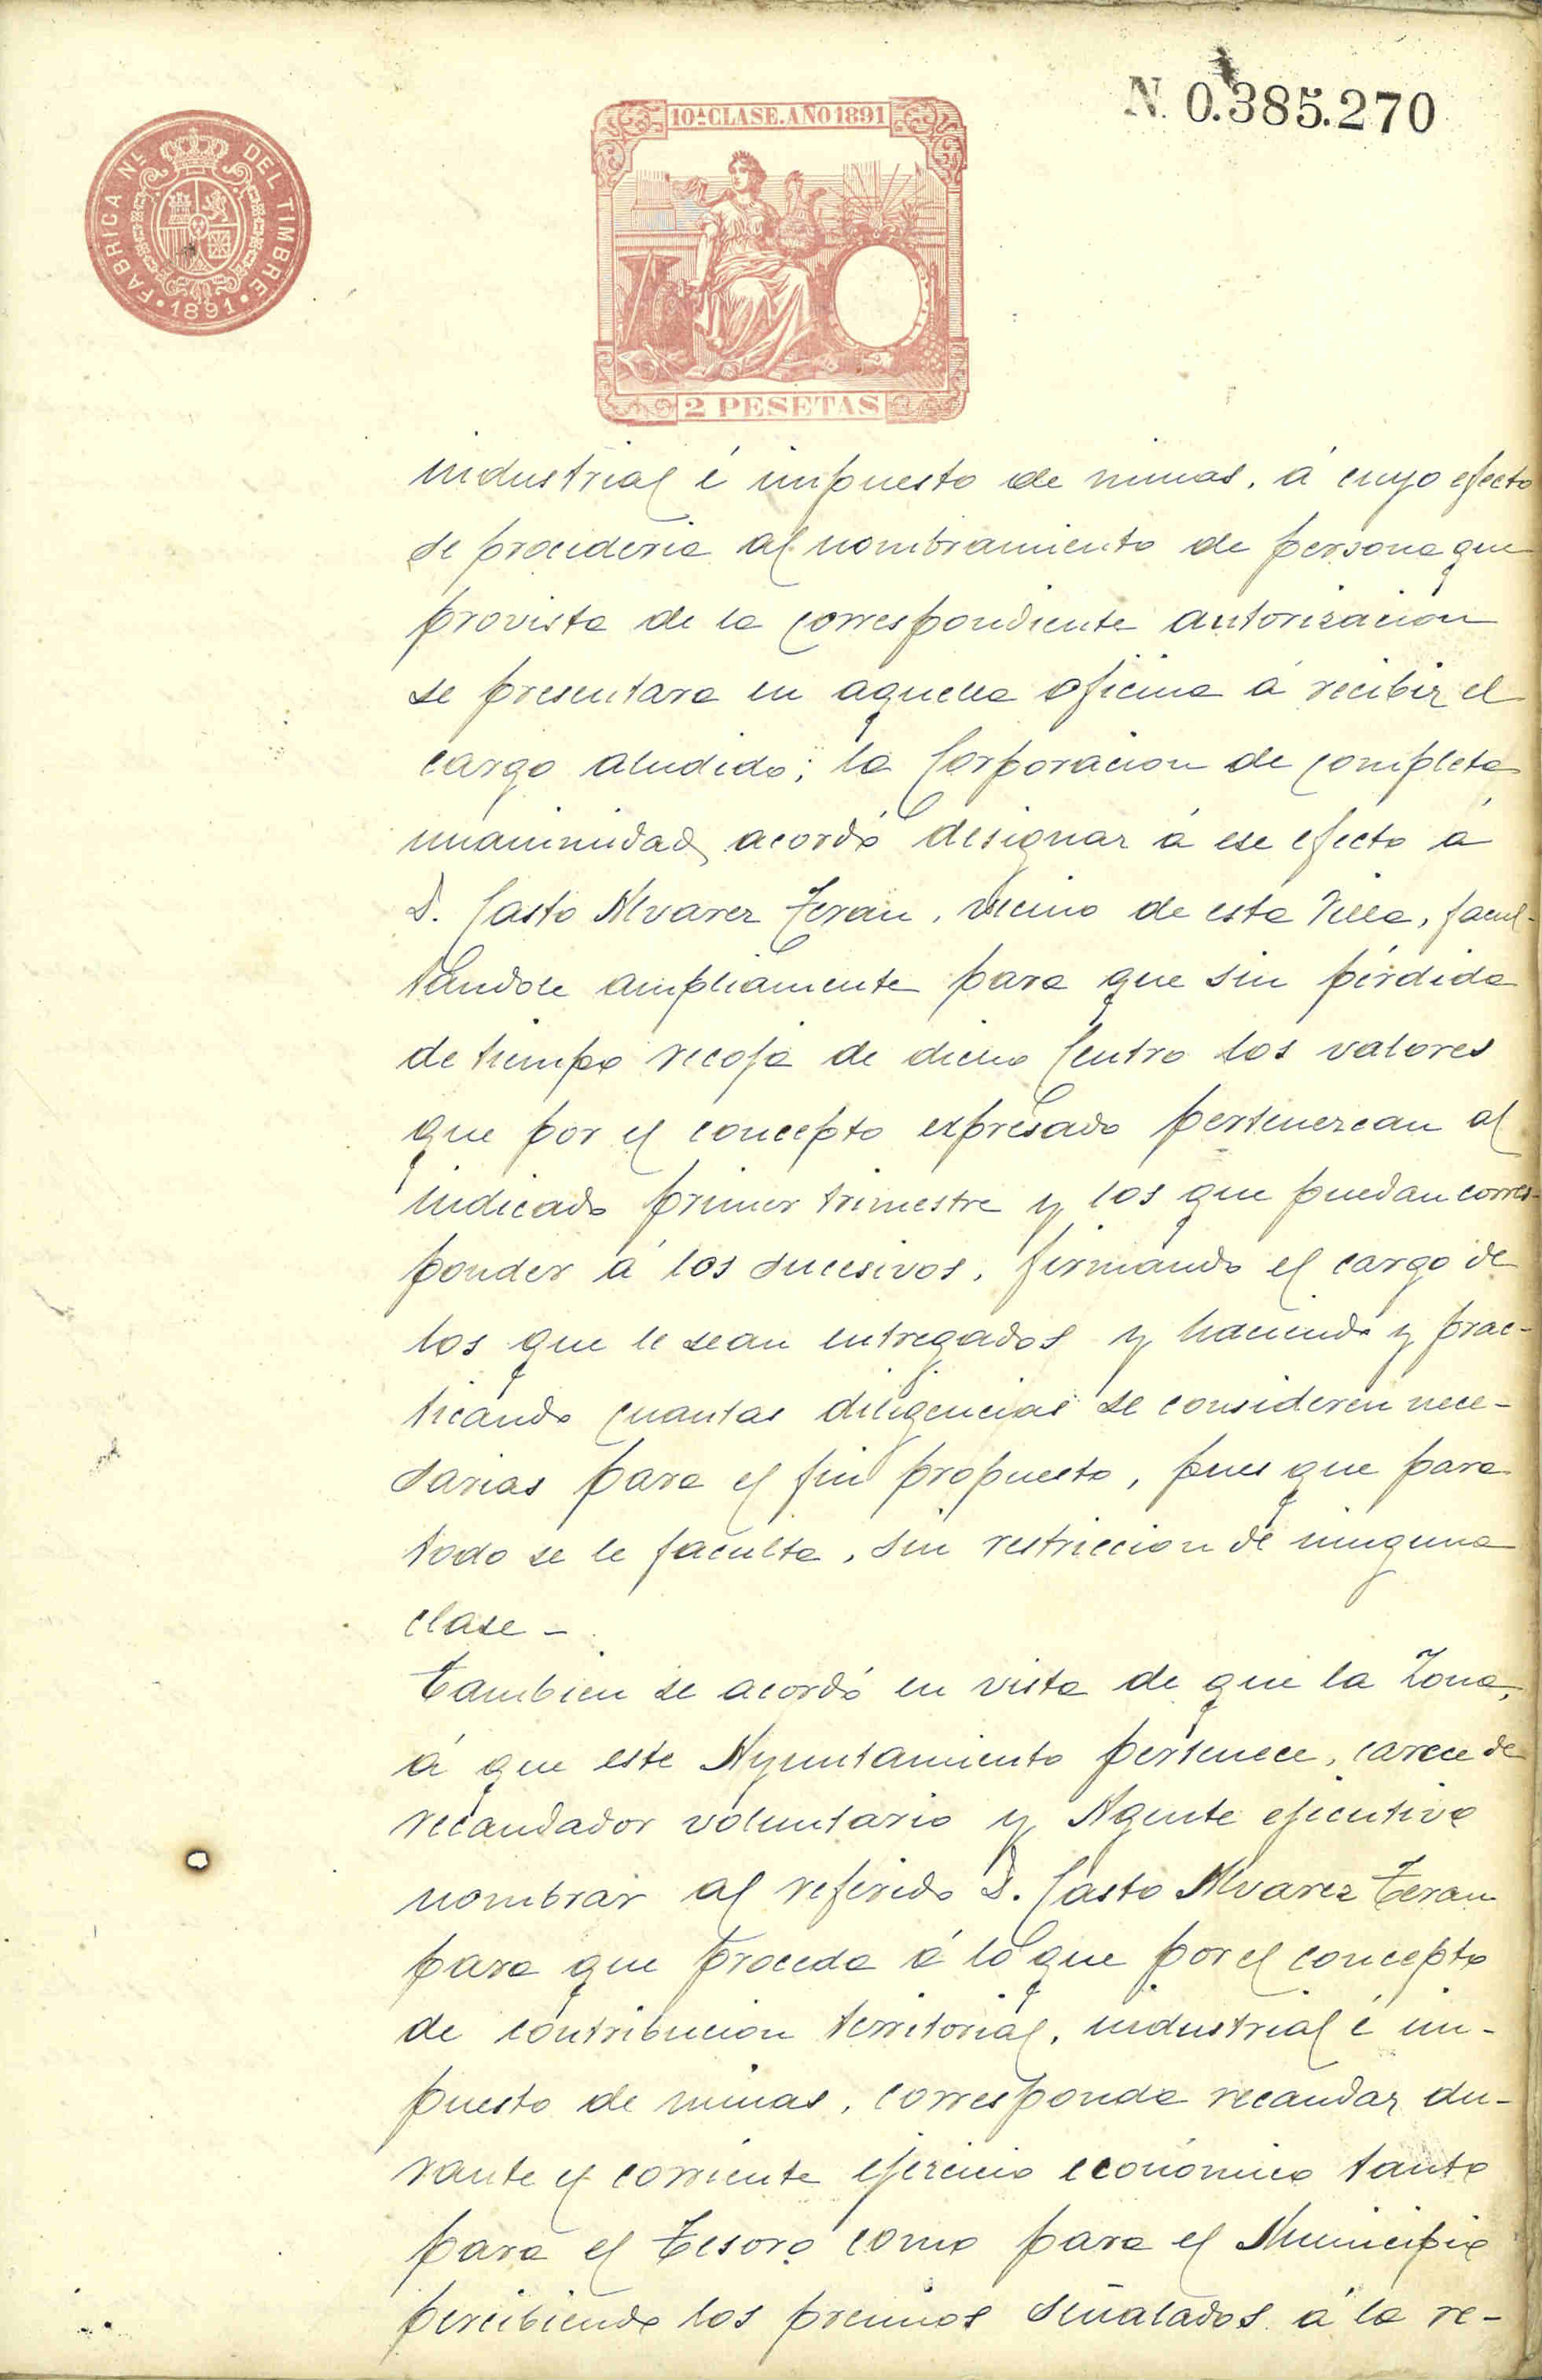 N. 0.385.270
10ª CLASE. AÑO 1891
FABRICA NL. DEL TIMBRE
1891
2 PESETAS
industrial é impuesto de minas, á cuyo efecto
se procederia al nombramiento de persona que
provista de la correspondiente autorizacion
se presentara en aquella oficina á recibir el
cargo aludido; la Corporacion de completa
unanimidad acordó designar á ese efecto á
D. Casto Alvarez Teran, vecino de esta Villa, facul-
tandole ampliamente para que sin pérdida
de tiempo recoja de dicho Centro los valores
que por el concepto expresado pertenezcan al
indicado primer trimestre y los que puedan corres-
ponder á los sucesivos, firmando el cargo de
los que le sean entregados y haciendo y prac-
ticando cuantas diligencias se consideren nece-
sarias para el fin propuesto, pues que para
todo se le faculta, sin restriccion de ninguna
clase -
Tambien se acordó en vista de que la Zona,
á que este Ayuntamiento pertenece, carece de
recaudador voluntario y Agente ejecutivo
nombrar al referido D. Casto Alvarez Teran
para que proceda á lo que por el concepto
de contribucion territorial, industrial é im-
puesto de minas, corresponda recaudar du-
rante el corriente ejercicio económico tanto
para el Tesoro como para el Municipio
percibiendo los premios señalados á la re-